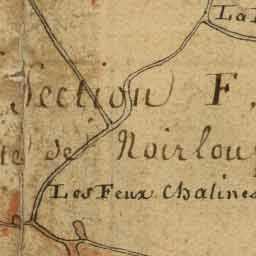 La
Section F.
de Noirlou
Les Feux Chalines